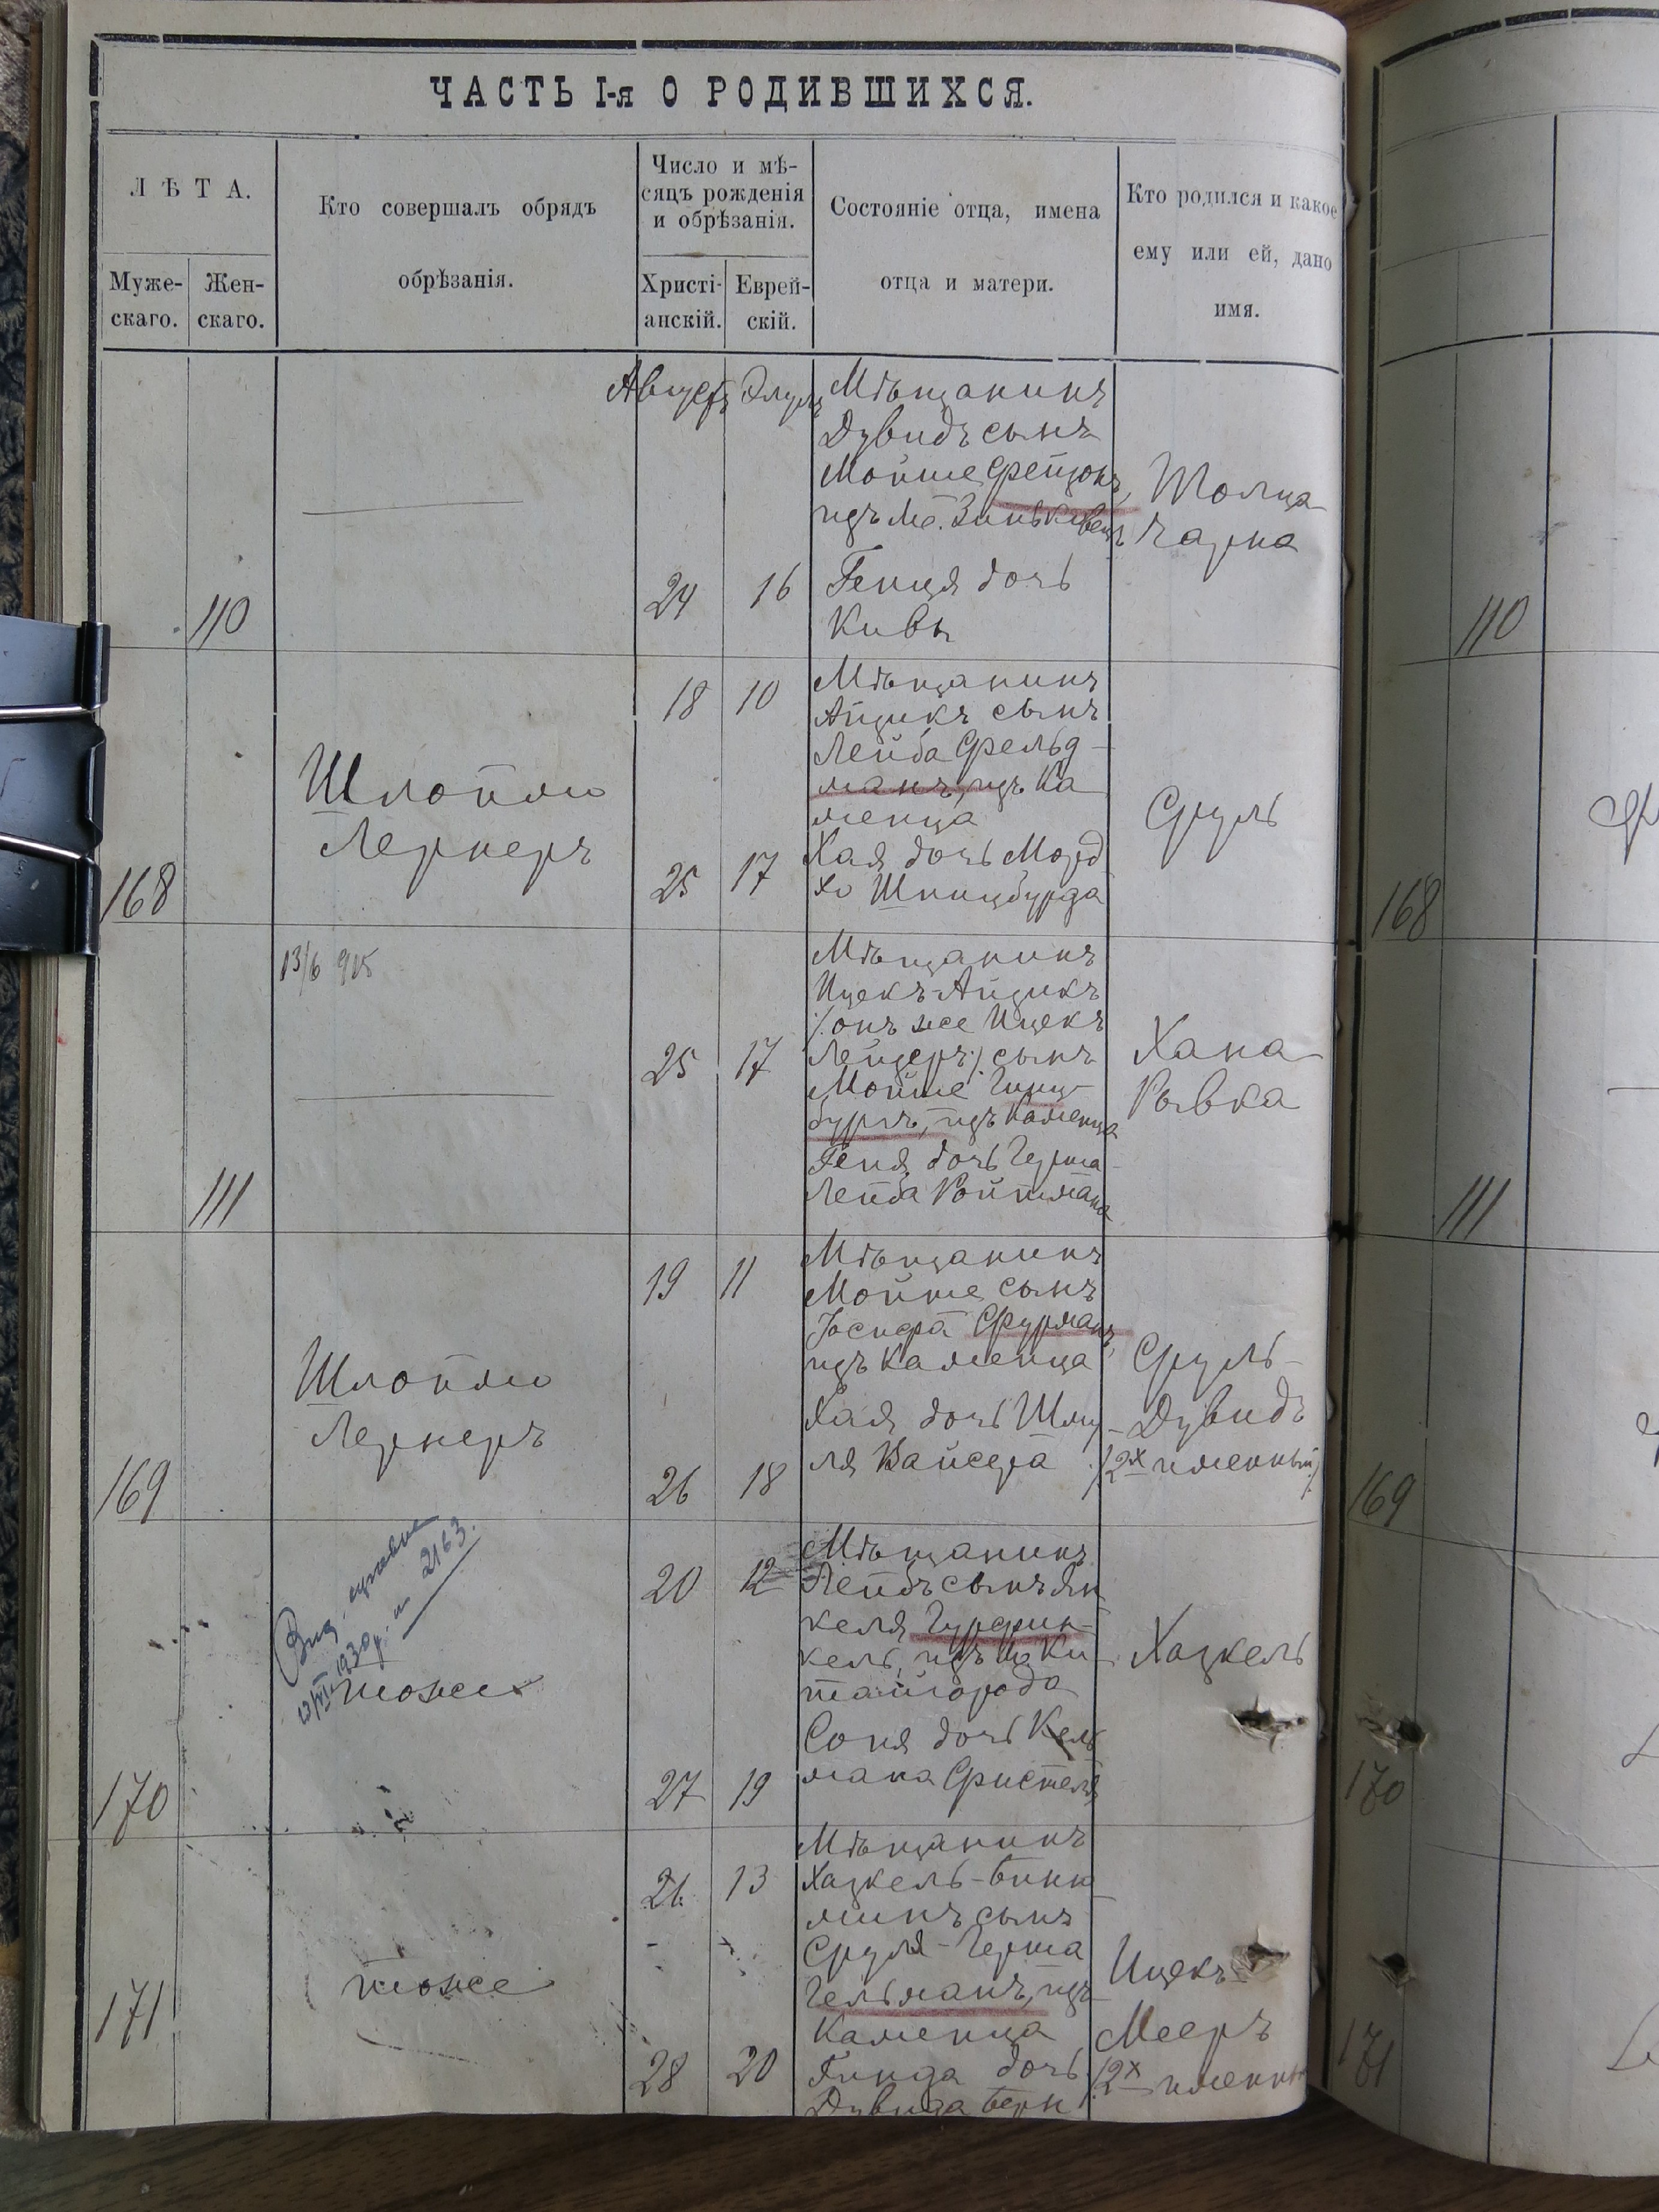 ЧАСТЬ I-я О РОДИВШИХСЯ.
ЛѢТА.
Муже-
скаго.
Жен-
скаго.
Кто совершалъ обрядъ
обрѣзанія.
Число и мѣ-
сяцъ рожденія
и обрѣзанія.
Христі-
анскій.
Еврей-
скій.
Состояніе отца, имена
отца и матери.
Кто родился и какое
ему или ей, дано
имя.
Августъ Элулъ
110
24 16
Мѣщанинъ
Дувидъ сынъ
Мойше
изъ м. Зиньковецъ
Геня дочь
Кивы
Чарна
110
168
Шлойми
Лернеръ
18 10
25 17
Мѣщанинъ
Айзикъ сынъ
Лейба Фельд-
манъ, изъ Ка
менца
Хая дочь Морд
хо Шпицбурга
Сруль
168
111
13/6 915
25 17
Мѣщанинъ
Ицекъ-Айзикъ
/:онъ же Ицекъ
Лейзеръ:/ сынъ
Мойше Гинц-
бургъ, изъ Каменца
Геня дочь Герша-
Лейба Ройтмана
Хана
Рывка
111
169
Шлойми
Лернеръ
19 11
26 18
Мѣщанинъ
Мойше сынъ
Іосифа Фурманъ,
изъ Каменца
Хая дочь Шму-
ля Вайсера
Сруль-
Дувидъ
/:2х именный:/
169
170
1930 г. 2163.
тоже
20 12
27 19
Мѣщанинъ
Лейбъ сынъ Ян
келя Гурфин-
кель, изъ м. Ки-
тайгорода
Соня дочь Кель
мана Фистеля
Хацкель
170
171
тоже
21 13
28 20
Мѣщанинъ
Хацкель-Биню
минъ сынъ
Сруля-Герша
Гельманъ, изъ
Каменца
Гинда дочь
Дувида Бери
Ицекъ-
Мееръ
/:2х именный
171